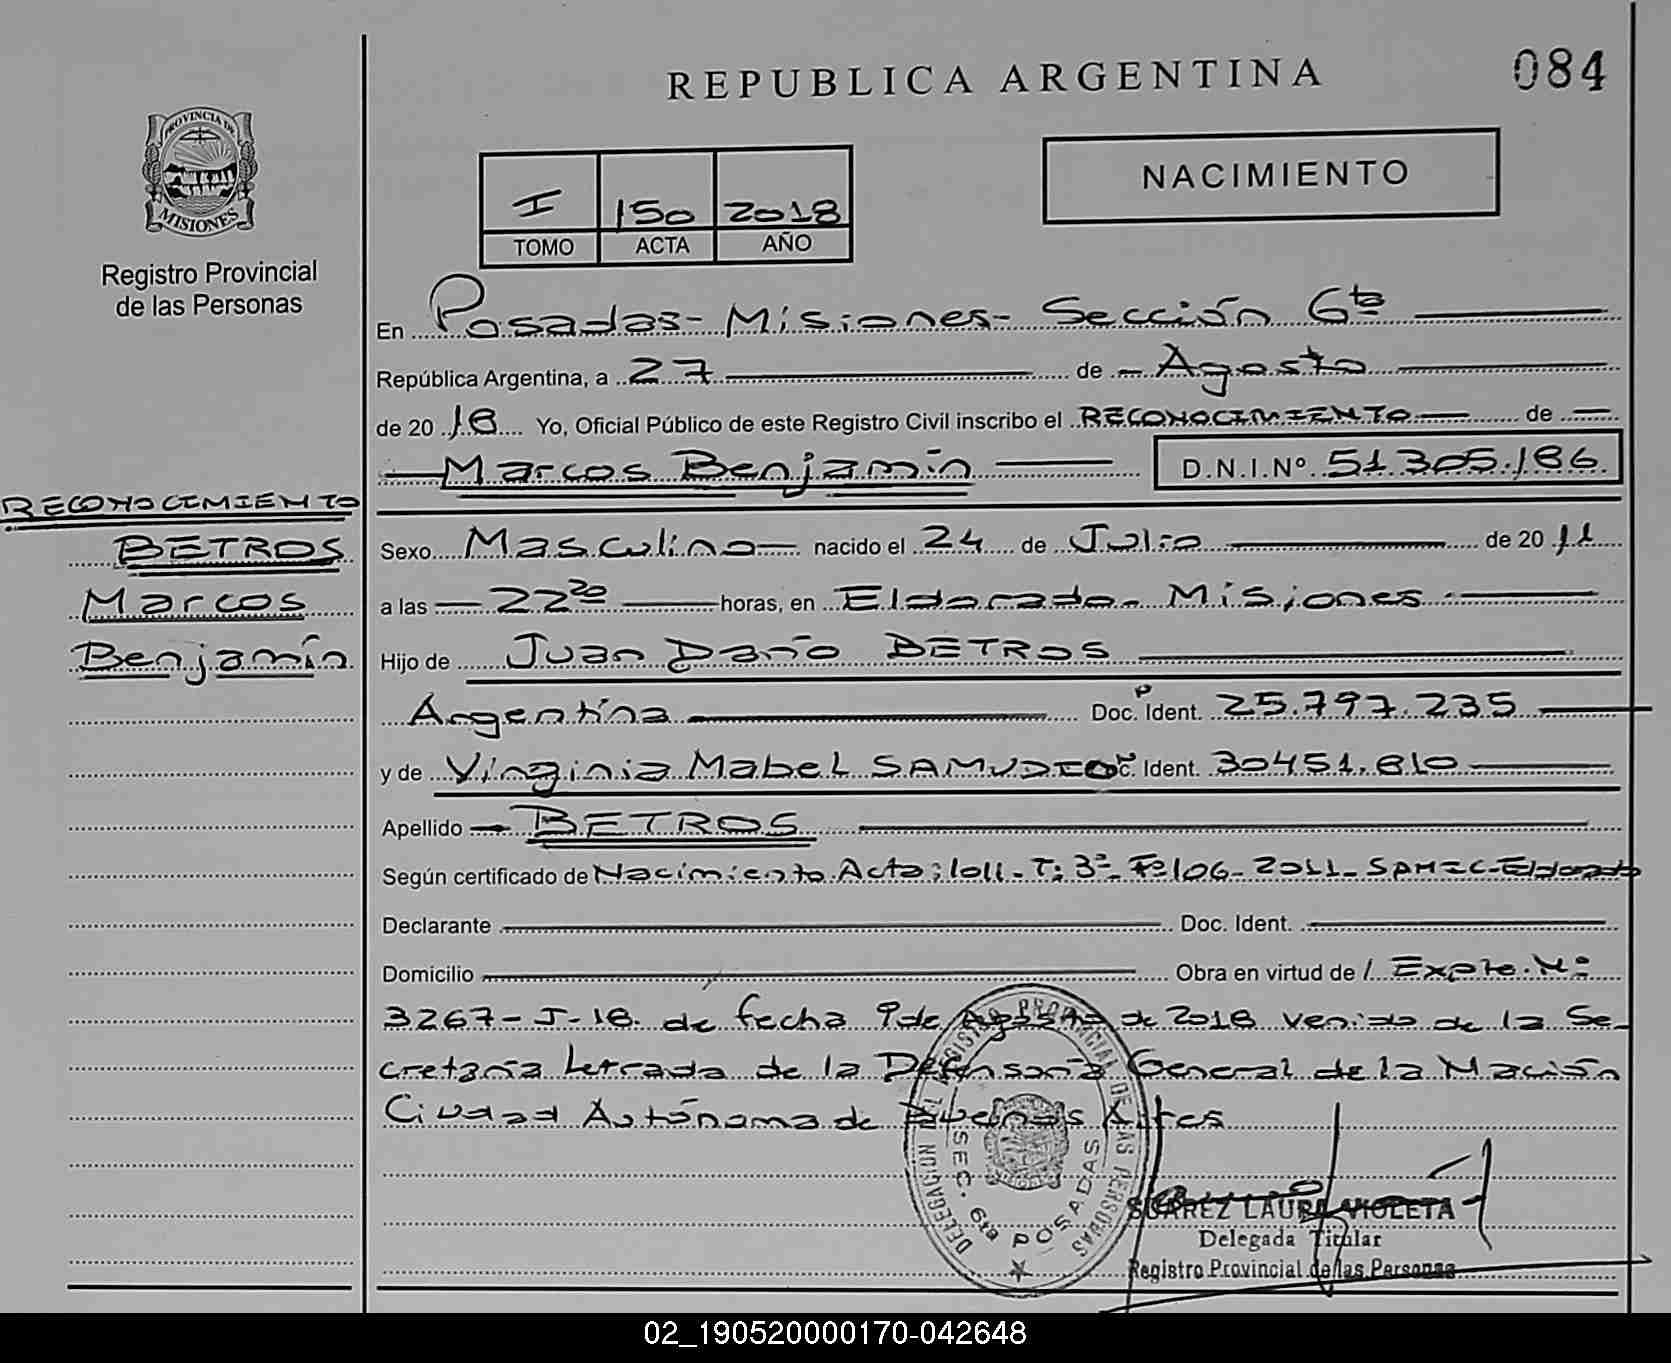 REPUBLICA ARGENTINA
084
PROVINCIA DE
MISIONES
Registro Provincial
de las Personas
I 150 2018
TOMO ACTA AÑO
NACIMIENTO
En Posadas - Misiones - Sección 6ta
República Argentina, a 27 de Agosto
de 2018 Yo, Oficial Público de este Registro Civil inscribo el RECONOCIMIENTO de
Marcos Benjamín D.N.I.Nº 51.305.186
RECONOCIMIENTO
BETROS
Marcos
Benjamín
Sexo Masculino nacido el 24 de Julio de 2011
a las 22 20 horas, en Eldorado - Misiones
Hijo de Juan Darío BETROS
Argentina Doc. Ident. 25.797.235
y de Virginia Mabel SAMUDIO Doc. Ident. 30451.810
Apellido BETROS
Según certificado de Nacimiento Acta: 1011 - T: 3º - Fº 106 - 2011 - SAMIC - Eldorado
Declarante Doc. Ident.
Domicilio Obra en virtud de / Expte. Nº
3267 - J - 18. de fecha 9 de Agosto de 2018 venido de la Se-
cretaría Letrada de la Defensoría General de la Nación
Ciudad Autónoma de Buenos Aires
DELEGACION DEL REGISTRO PROVINCIAL DE LAS PERSONAS
SEC. 6ta POSADAS
SUAREZ LAURA VIOLETA
Delegada Titular
Registro Provincial de las Personas
02_190520000170-042648